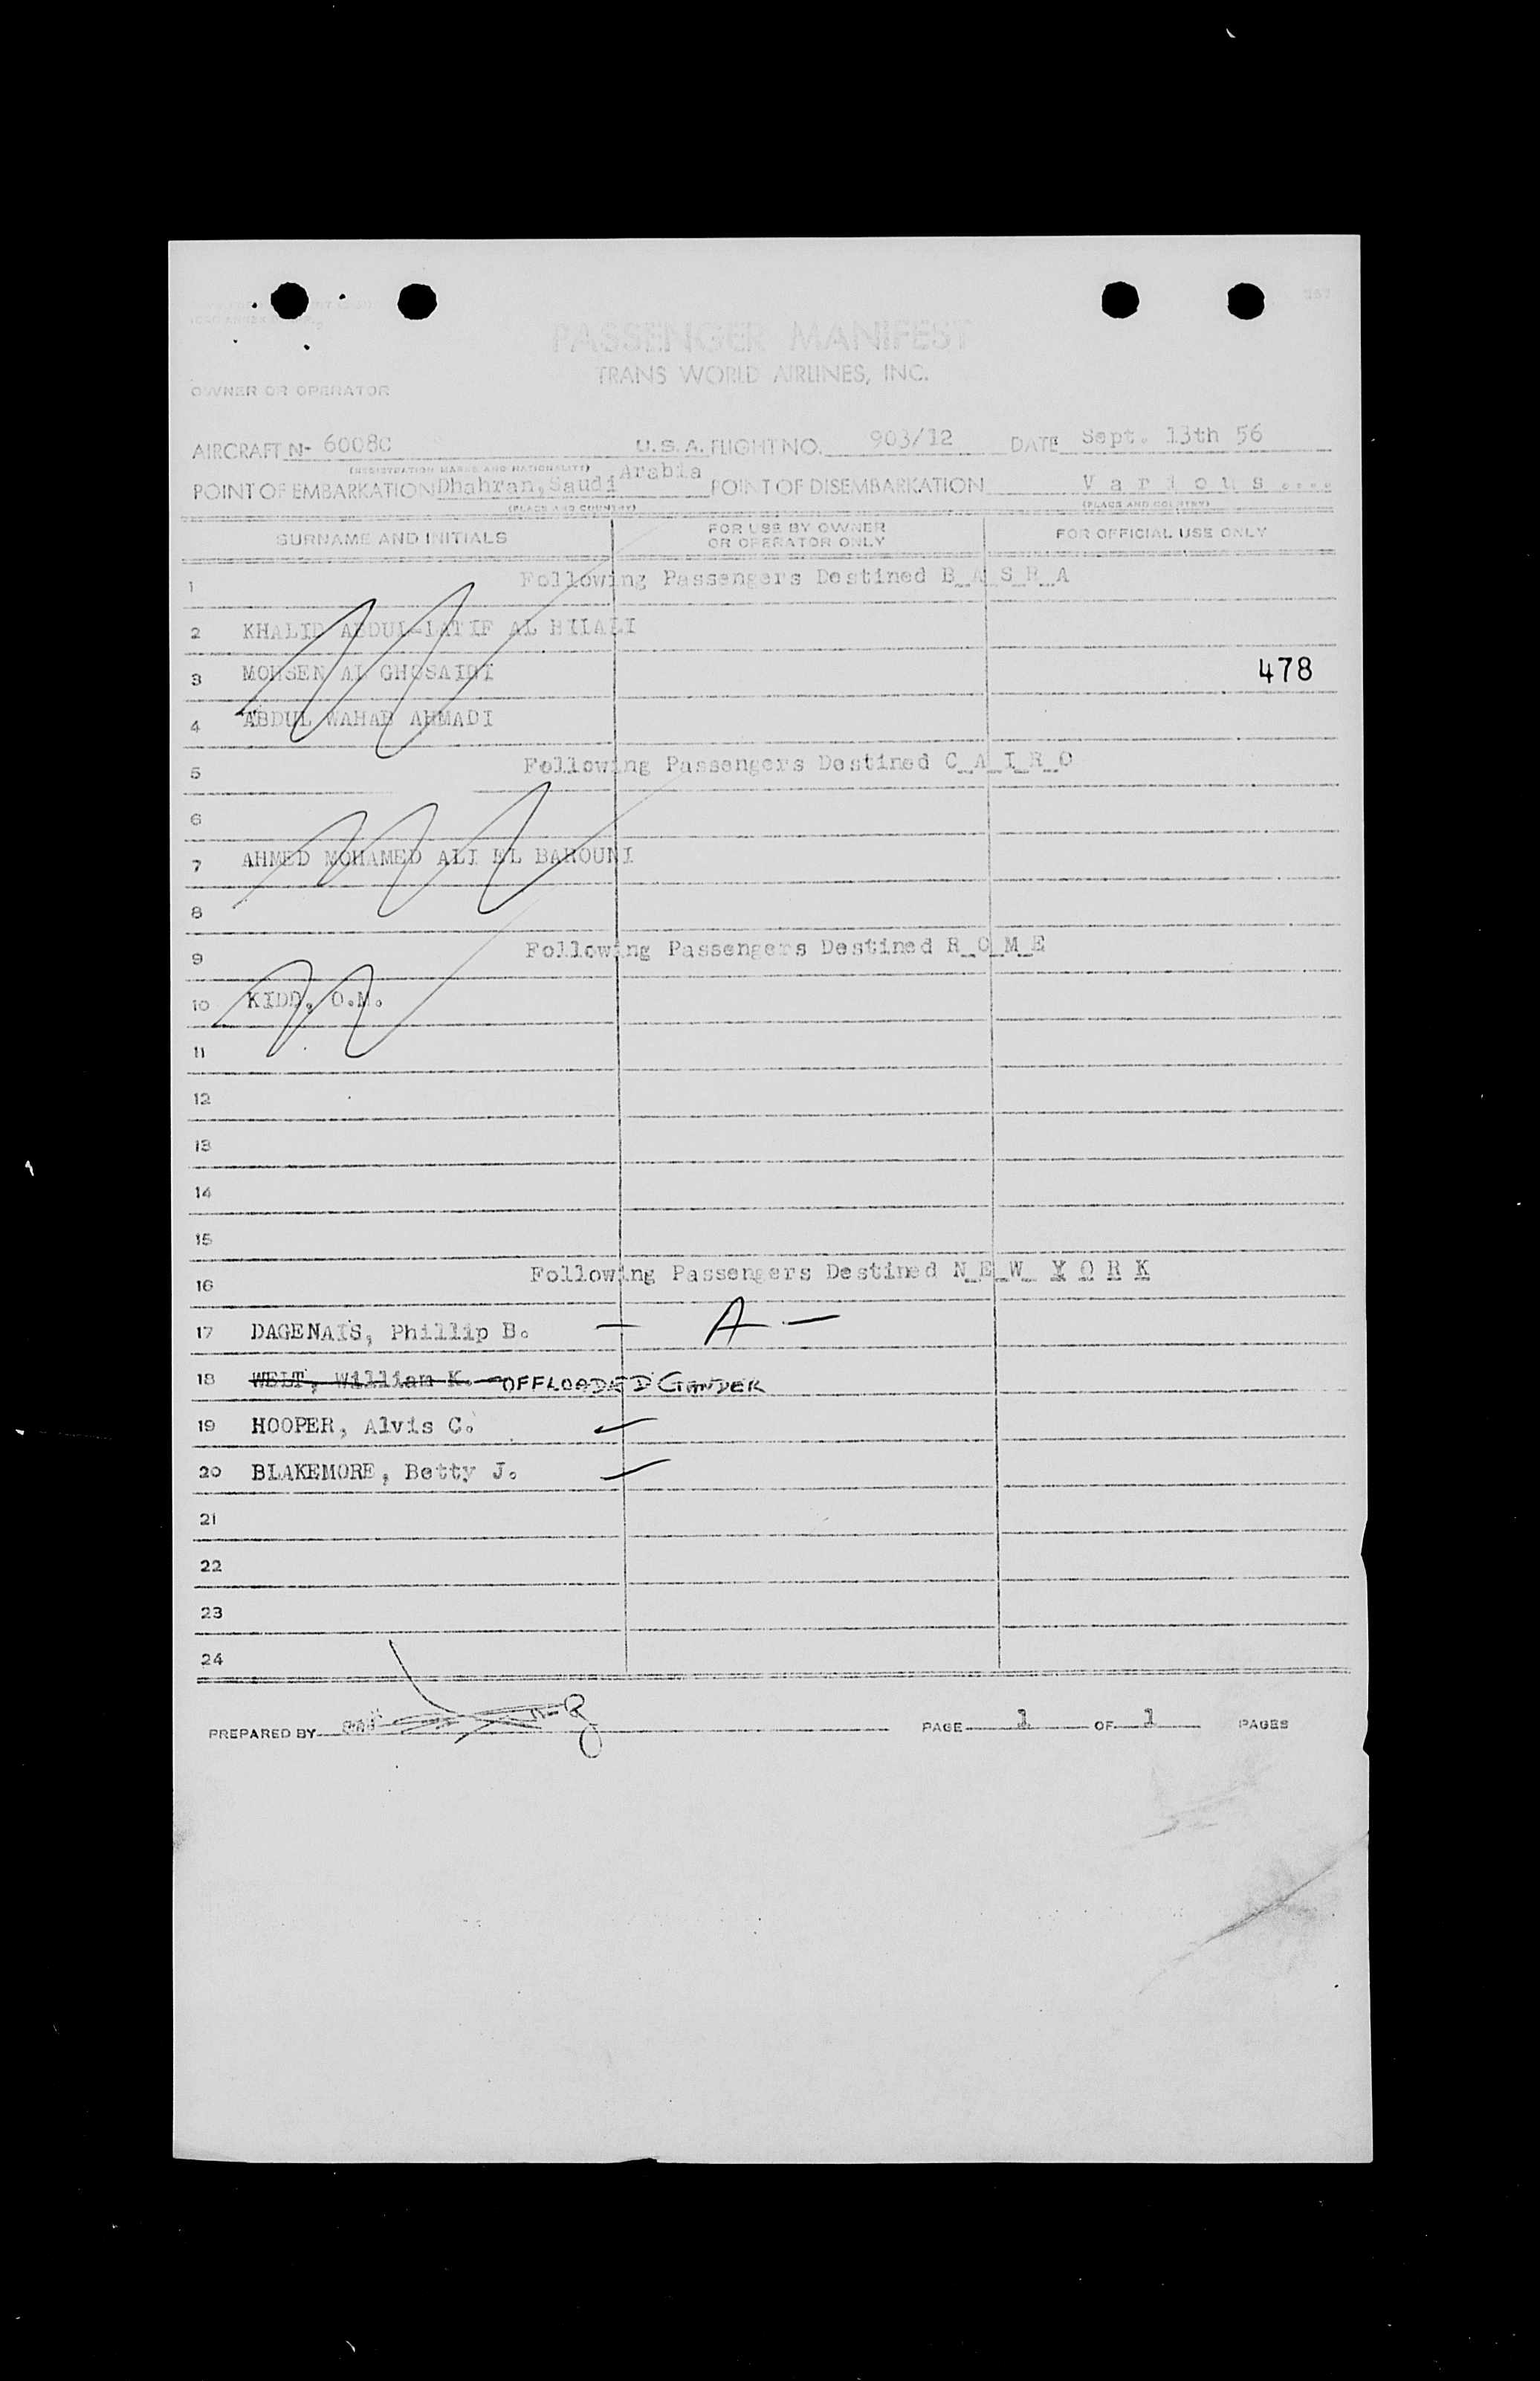 PASSENGER MANIFEST
TRANS WORLD AIRLINES, INC.
OWNER OR OPERATOR
AIRCRAFT No 6008C U.S.A. FLIGHT NO. 903/12 DATE Sept. 13th 56
(REGISTRATION MARKS AND NATIONALITY)
POINT OF EMBARKATION Dhahran, Saudi Arabia POINT OF DISEMBARKATION Various....
(PLACE AND COUNTRY) (PLACE AND COUNTRY)
SURNAME AND INITIALS FOR USE BY OWNER OR OPERATOR ONLY FOR OFFICIAL USE ONLY
1 Following Passengers Destined B_A_S_R_A
2 KHALID ABDUL-LATIF AL HILALI
3 MOHSEN AL GHOSAIBI 478
4 ABDUL WAHAB AHMADI
5 Following Passengers Destined C_A_I_R_O
6
7 AHMED MOHAMED ALI EL BAROUNI
8
9 Following Passengers Destined R_O_M_E
10 KIDD, O.M.
11
12
13
14
15
16 Following Passengers Destined N_E_W_ Y O R K
17 DAGENAIS, Phillip B. — A —
18 WELT, William K. — OFFLOADED GANDER
19 HOOPER, Alvis C. ✓
20 BLAKEMORE, Betty J. ✓
21
22
23
24
PREPARED BY PAGE 1 OF 1 PAGES